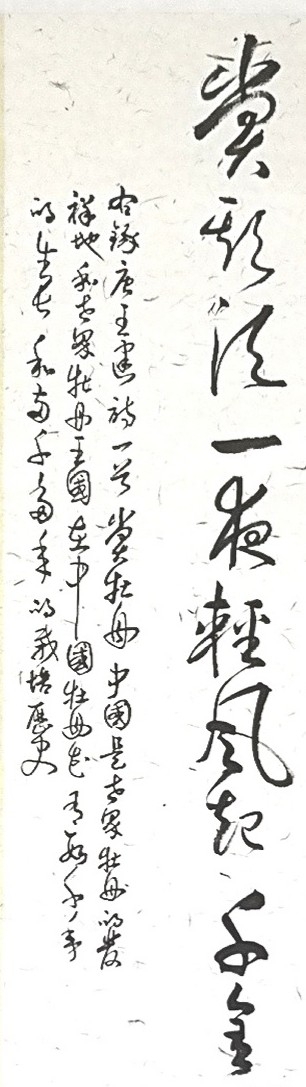 賞斯須一夜輕風起千金
右錄唐王建詩一首賞牡丹中國是世界牡丹的發
祥地和世界牡丹王國在中國牡丹花有數千年
的生长和两千多年的栽培歷史